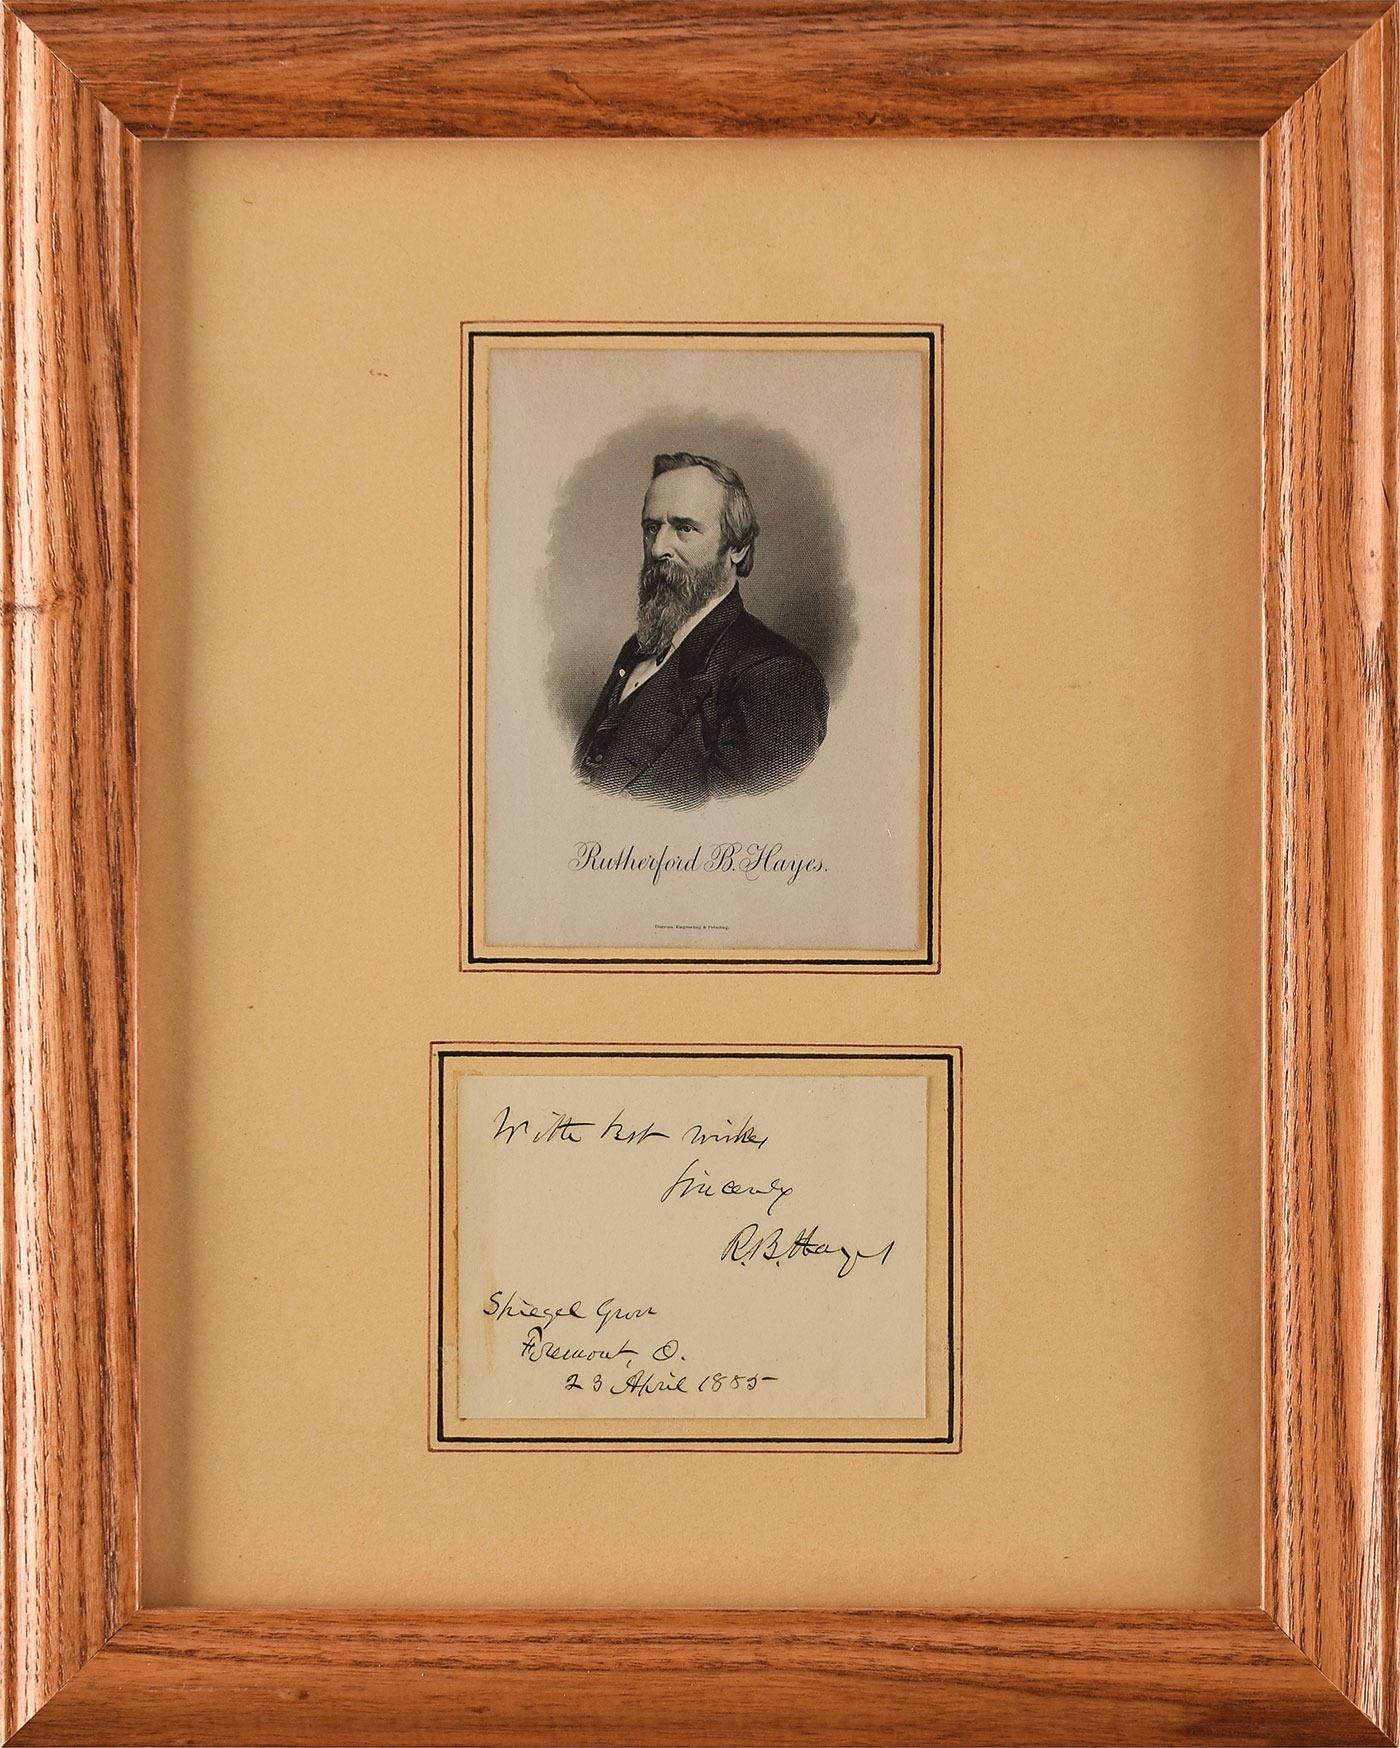 Rutherford B. Hayes.
Engraving & Printing.
With best wishes
Sincerely
R. B. Hayes
Spiegel Grove
Fremont, O.
23 April 1885